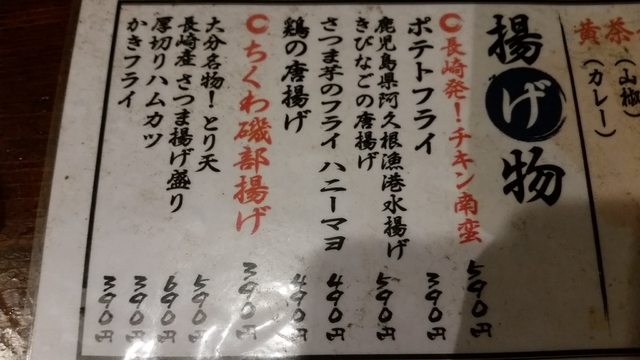 黄茶
（山椒）
（カレー）
揚げ物
長崎発！チキン南蛮 590円
ポテトフライ 390円
鹿児島県阿久根漁港水揚げ
きびなごの唐揚げ 590円
さつま芋のフライ ハニーマヨ 490円
鶏の唐揚げ 490円
ちくわ磯部揚げ 390円
大分名物！とり天 590円
長崎産 さつま揚げ盛り 690円
厚切りハムカツ 390円
かきフライ 390円